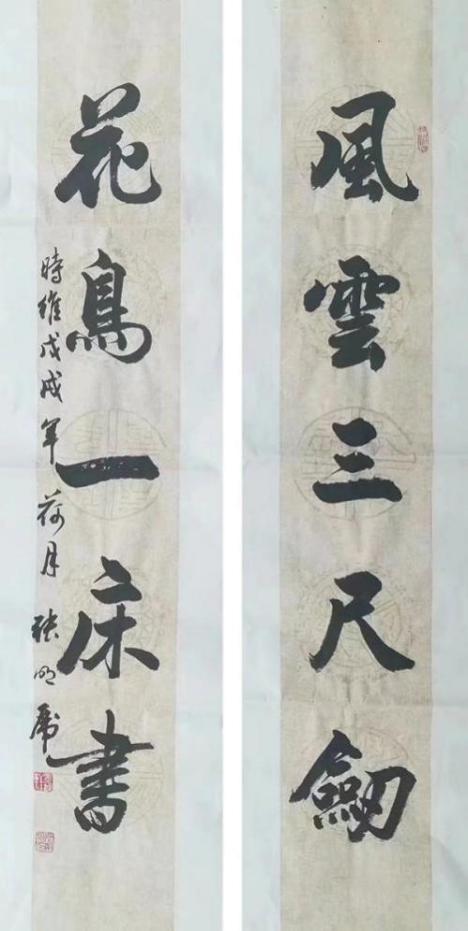 風雲三尺劔
花鳥一床書
時維戊戌年荷月 張明虎